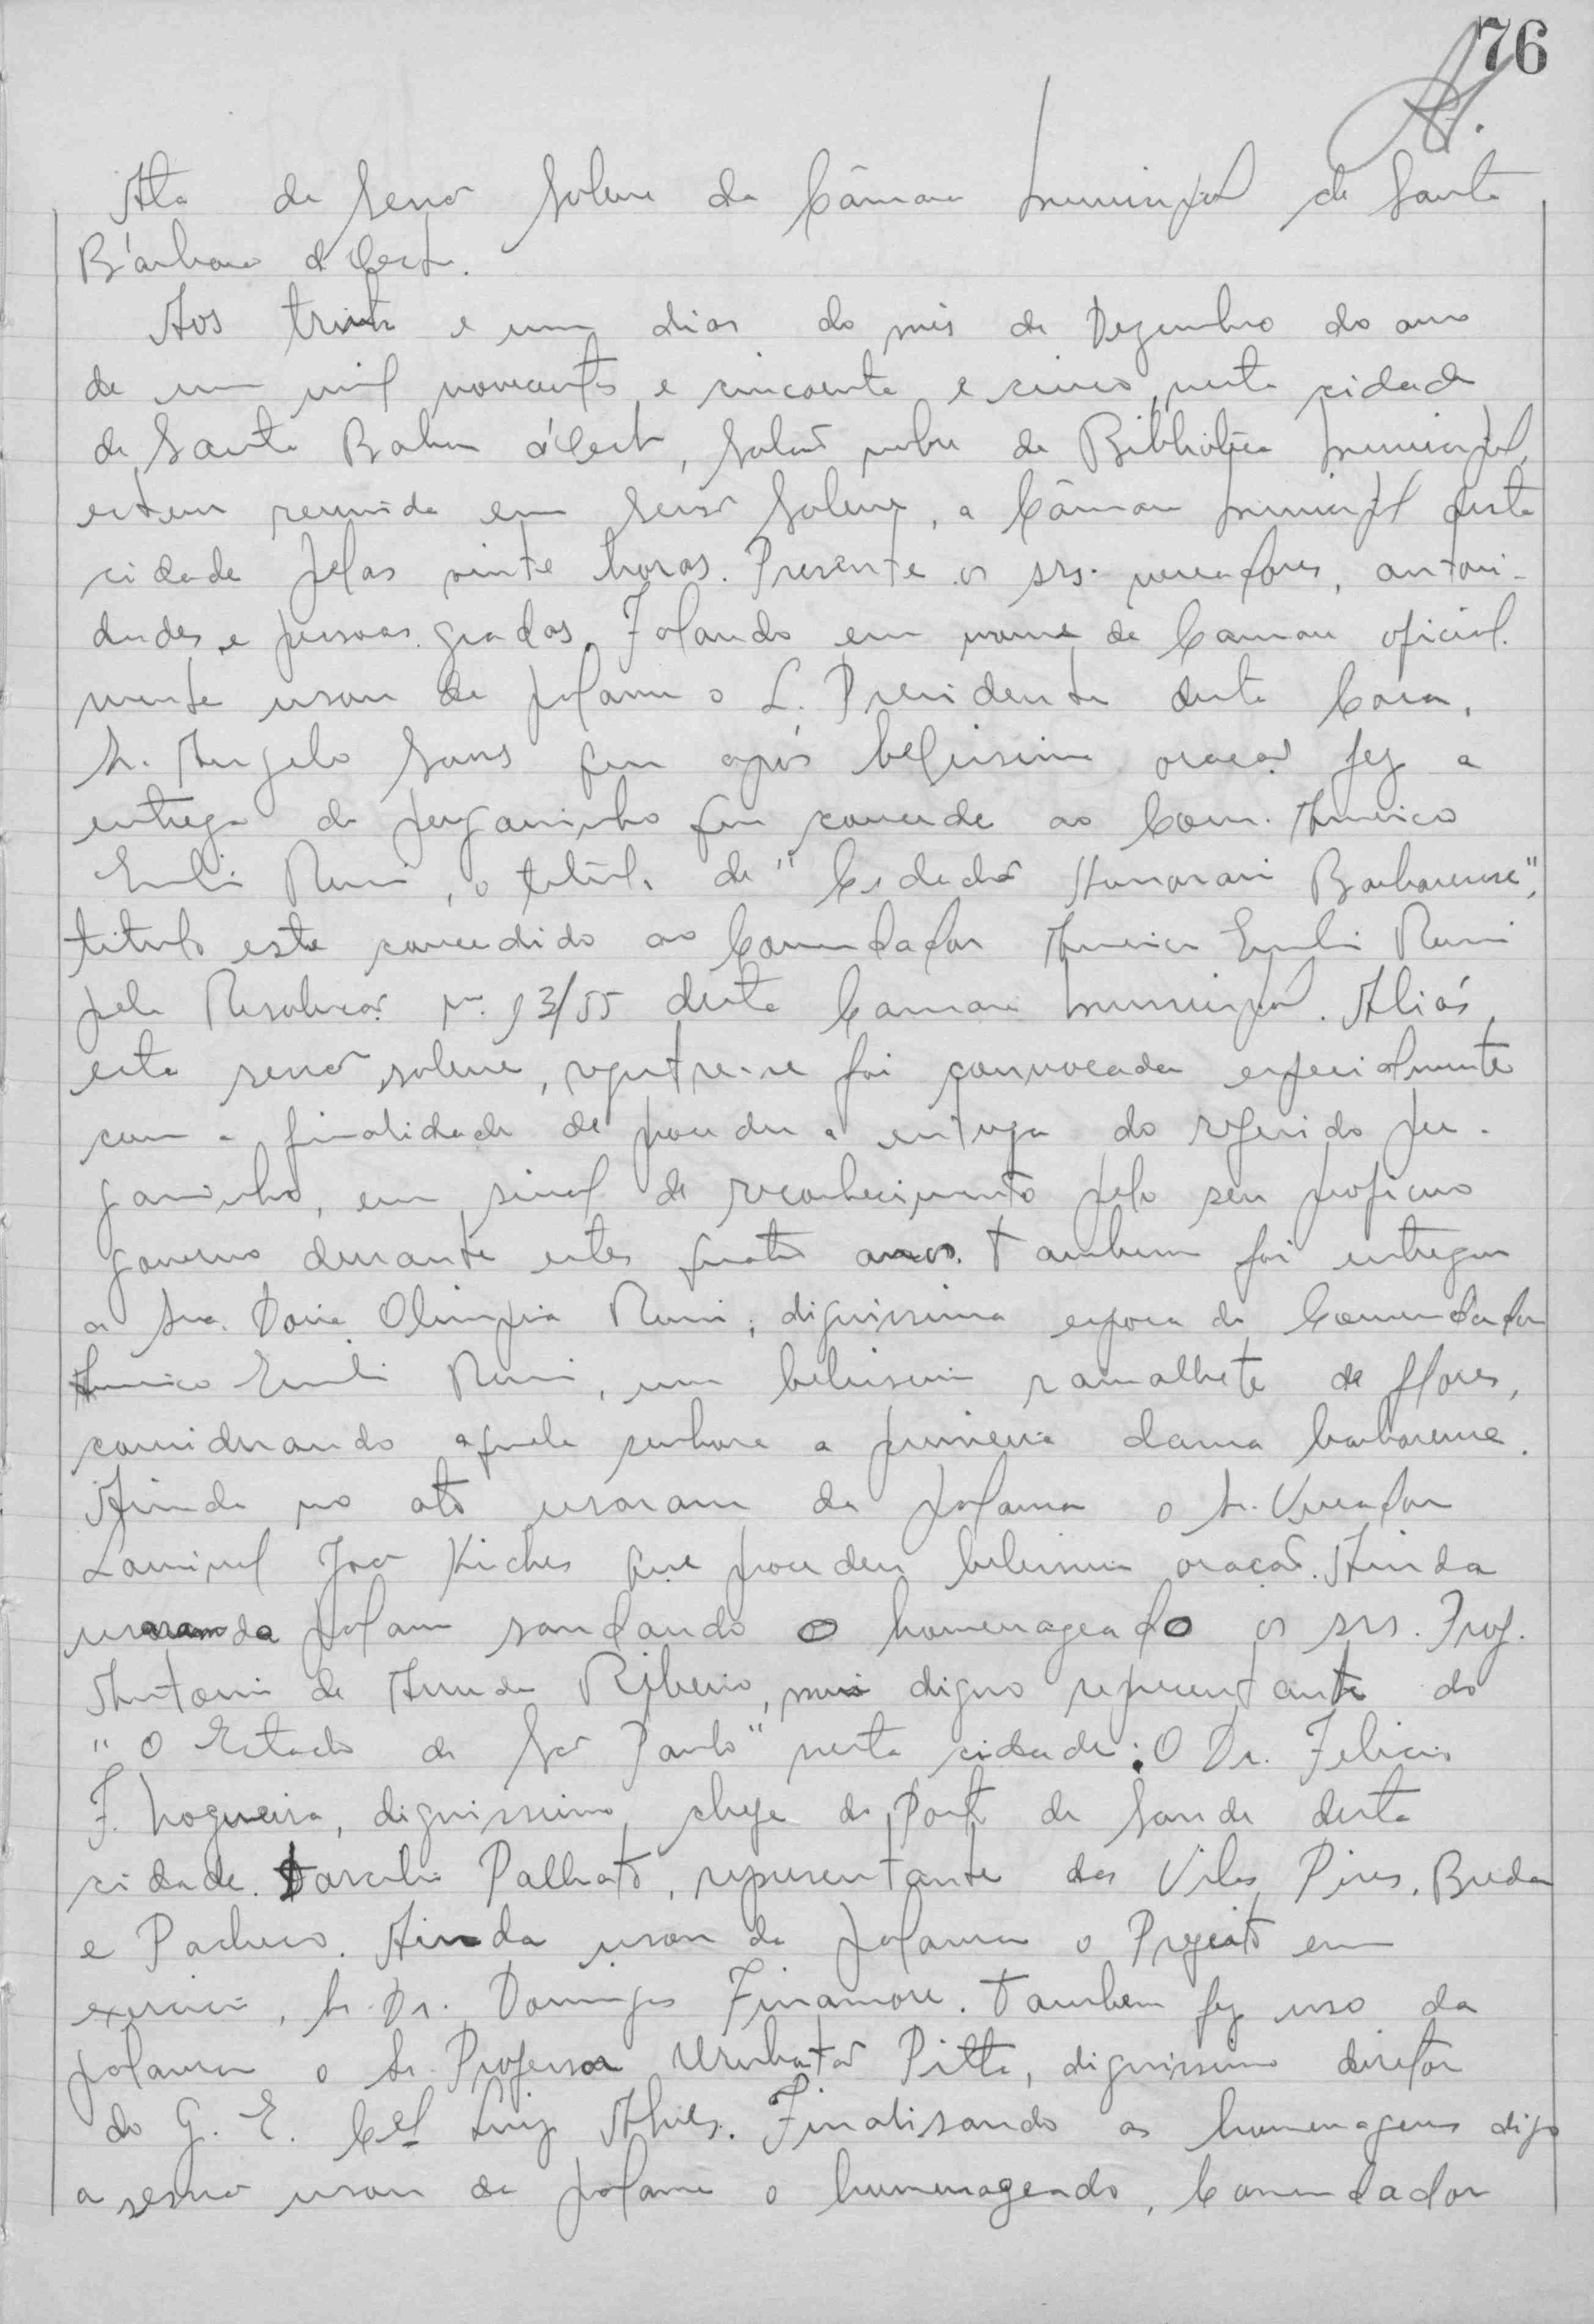 76
Ata da Sessão Solene da Câmara Municipal de Santa
Bárbara d'Oeste.
Aos trinta e um dias do mês de Dezembro do ano
de um mil novecentos e cincoenta e cinco, nesta cidade
de Santa Barbara d'Oeste, Salão nobre da Biblioteca Municipal,
esteve reunida em Sessão Solene, a Câmara Municipal desta
cidade pelas vinte horas. Presente os srs. vereadores, autori-
dades e pessoas gradas. Falando em nome da Camara oficial-
mente usou da palavra o Presidente desta Casa,
Sr. Angelo Sans que após belissima oração fez a
entrega do pergaminho que concede ao Com. Americo
Emilio Romi, o titulo de "Cidadão Honorario Barbarense",
titulo este concedido ao Comendador Americo Emilio Romi
pela Resolução nº 13/55 desta Camara Municipal. Aliás,
esta sessão solene, registre-se foi convocada especialmente
com a finalidade de proceder a entrega do referido per-
gaminho, em sinal de reconhecimento pelo seu profícuo
governo durante estes quatro anos. Tambem foi entregue
a Sra. Dona Olimpia Romi, dignissima esposa do Comendador
Americo Emilio Romi, um belissimo ramalhete de flores,
considerando aquela senhora a primeira dama barbarense.
Ainda no ato usaram da palavra o Sr. Vereador
José Kiehes que procedeu belissima oração. Ainda
usaram da palavra saudando o homenageado os srs. Prof.
Antonio de Arruda Ribeiro, mui digno representante do
"O Estado de São Paulo" nesta cidade; O Dr. Felicio
F. Nogueira, dignissimo chefe do Posto de Saude desta
cidade. Tarcilio Palhato, representante das Vilas Pires, Breda
e Pacheco. Ainda usou da palavra o Prefeito em
exercicio, Sr. Dr. Domingos Finamore. Tambem fez uso da
palavra o Sr. Professor Urubatão Pitta, dignissimo diretor
do G. E. Cel Luiz Alves. Finalisando as homenagens digo
a sessão usou da palavra o homenageado, Comendador